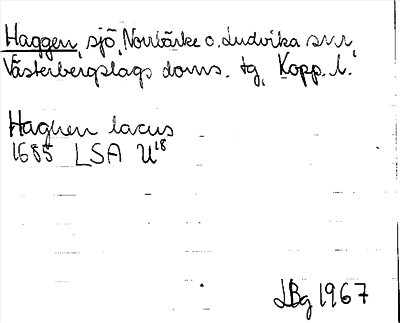 Haggen, sjö, Norrbärke o. Ludvika snr
Västerbergslags doms. tg, Kopp. l.
Haguen lacus
1685 LSA U18
LBg 1967